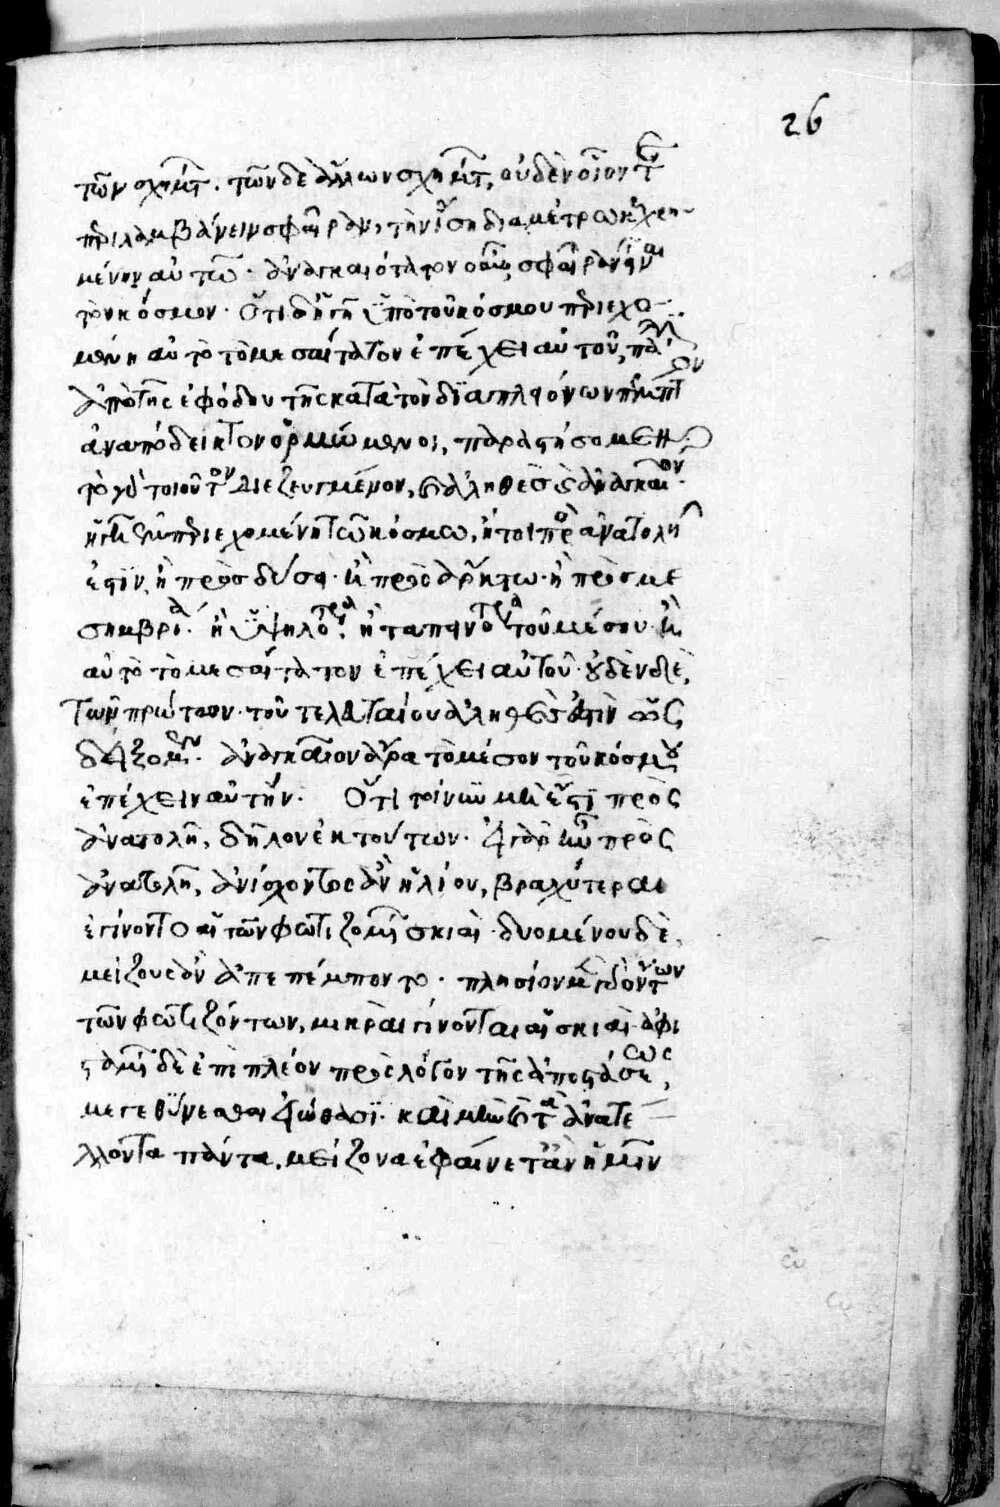 26
τῶν σχημάτ. τῶν δὲ ἄλλων σχημάτ, οὐδὲν οἷόν τε
περιλαμβάνειν σφαῖραν, τὴν ἴσῃ διαμέτρω κεχρη
μένην αὐτῶ. ἀναγκαιότατον οὖν σφαῖραν εἶναι
τὸν κόσμον. Ὅτι δὲ ἡ γῆ ὑπὸ τοῦ κόσμου περιεχο
μένη αὐτὸ τὸ μεσαίτατον ἐπέχει αὐτοῦ, πάλιν
ἀπὸ τῆς ἐφόδου τῆς κατὰ τὸν διὰ πλειόνων πέμπτον
ἀναπόδεικτον ὁρμώμενοι, παραστήσομεν.
τὸ γὰρ τοιοῦτον διεζευγμένον, καὶ ἀληθές καὶ ἀναγκαῖον.
ἡ γῆ ἐμπεριεχομένη τῶ κόσμω, ἤτοι πρὸς ἀνατολὴν
ἐστϊν, ἢ πρὸς δύσει. ἢ πρὸς ἄρκτω. ἢ πρὸς με
σημβρία. ἢ ὑψηλοτέρα. ἢ ταπεινοτέρα τοῦ μέσου. ἢ
αὐτὸ τὸ μεσαίτατον ἐπέχει αὐτοῦ. οὐδὲν δὲ,
τῶν πρώτων. τοῦ τελευταίου ἀληθές ἐστὶν ὡς
δείξομεν. ἀναγκαῖον ἄρα τὸ μέσον τοῦ κόσμου
ἐπέχειν αὐτήν. Ὅτι τοίνυν μὴ ἐστϊ πρὸς
ἀνατολῇ, δῆλον ἐκ τούτων. εἰ γὰρ ἦν πρὸς
ἀνατολῇ, ἀνίσχοντος ἂν ἡλίου, βραχύτεραι
ἐγίνοντο αἱ τῶν φωτιζομένων σκιαὶ. δυομένου δὲ,
μείζους ἂν ἀπεπέμποντο. πλησίον μὲν γὰρ ὄντων
τῶν φωτιζόντων, μικραὶ γίνονται αἱ σκιαὶ. ἀφι
σταμένων δὲ ἐπὶ πλέον πρὸς λόγον τῆς ἀποστάσεως,
μεγεθύνεσθαι εἰώθασϊ. καὶ μὴν καὶ τὰ ἀνατέ
λλοντα πάντα, μείζονα ἐφαίνετο ἂν ἡμῖν